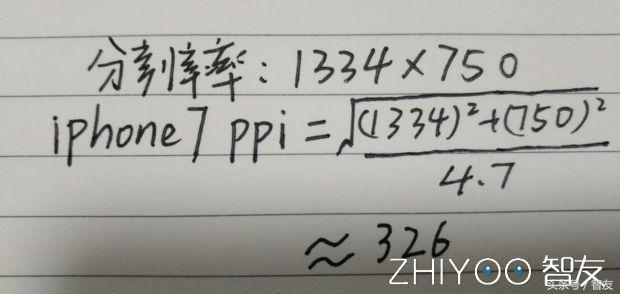 分辨率率: 1334×750
iphone7 ppi = √(1334)²+(750)²
4.7
≈ 326
ZHIYOO 智友
头条号 / 智友